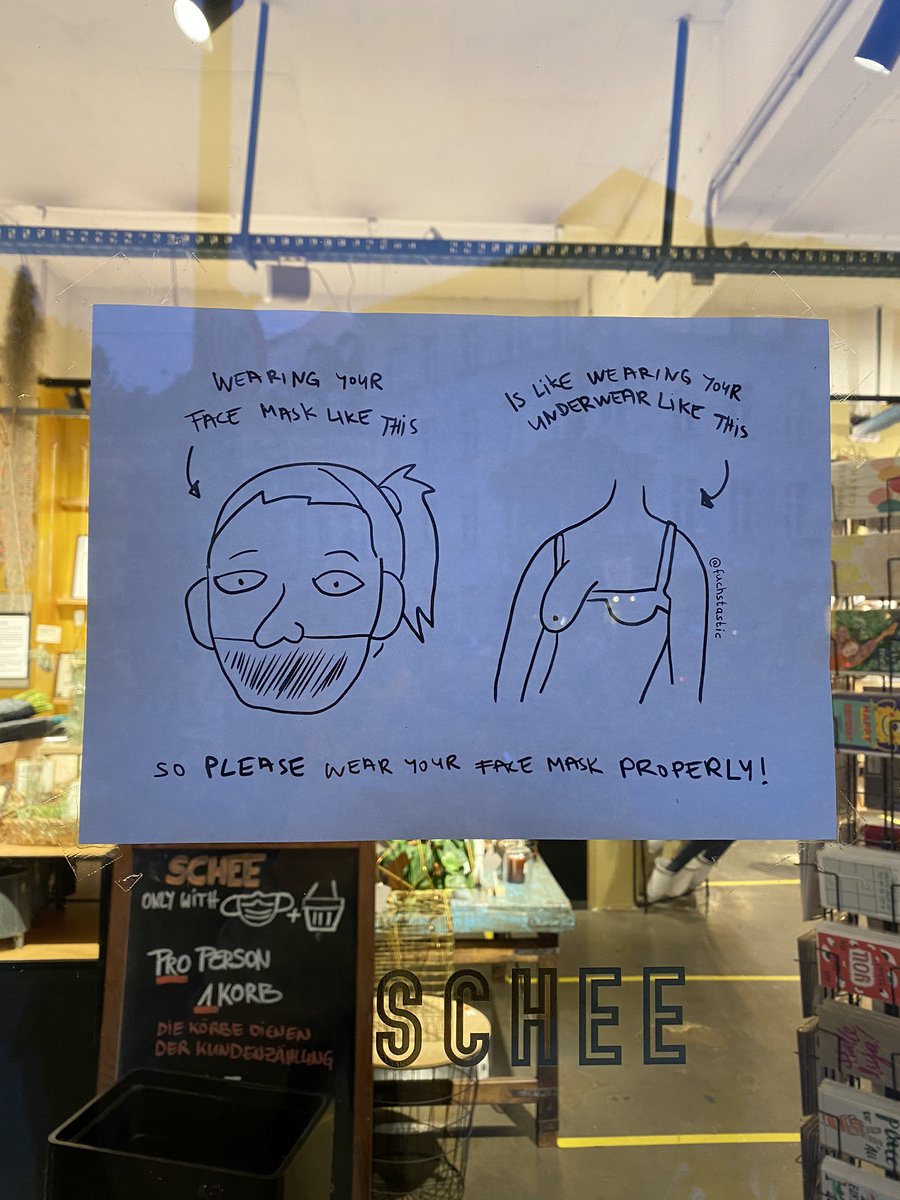 WEARING YOUR
FACE MASK LIKE THIS
IS LIKE WEARING YOUR
UNDERWEAR LIKE THIS
@fuchstastic
SO PLEASE WEAR YOUR FACE MASK PROPERLY!
SCHEE
ONLY WITH +
PRO PERSON
1 KORB
DIE KÖRBE DIENEN
DER KUNDENZÄHLUNG
SCHEE
HAPPY
MOM